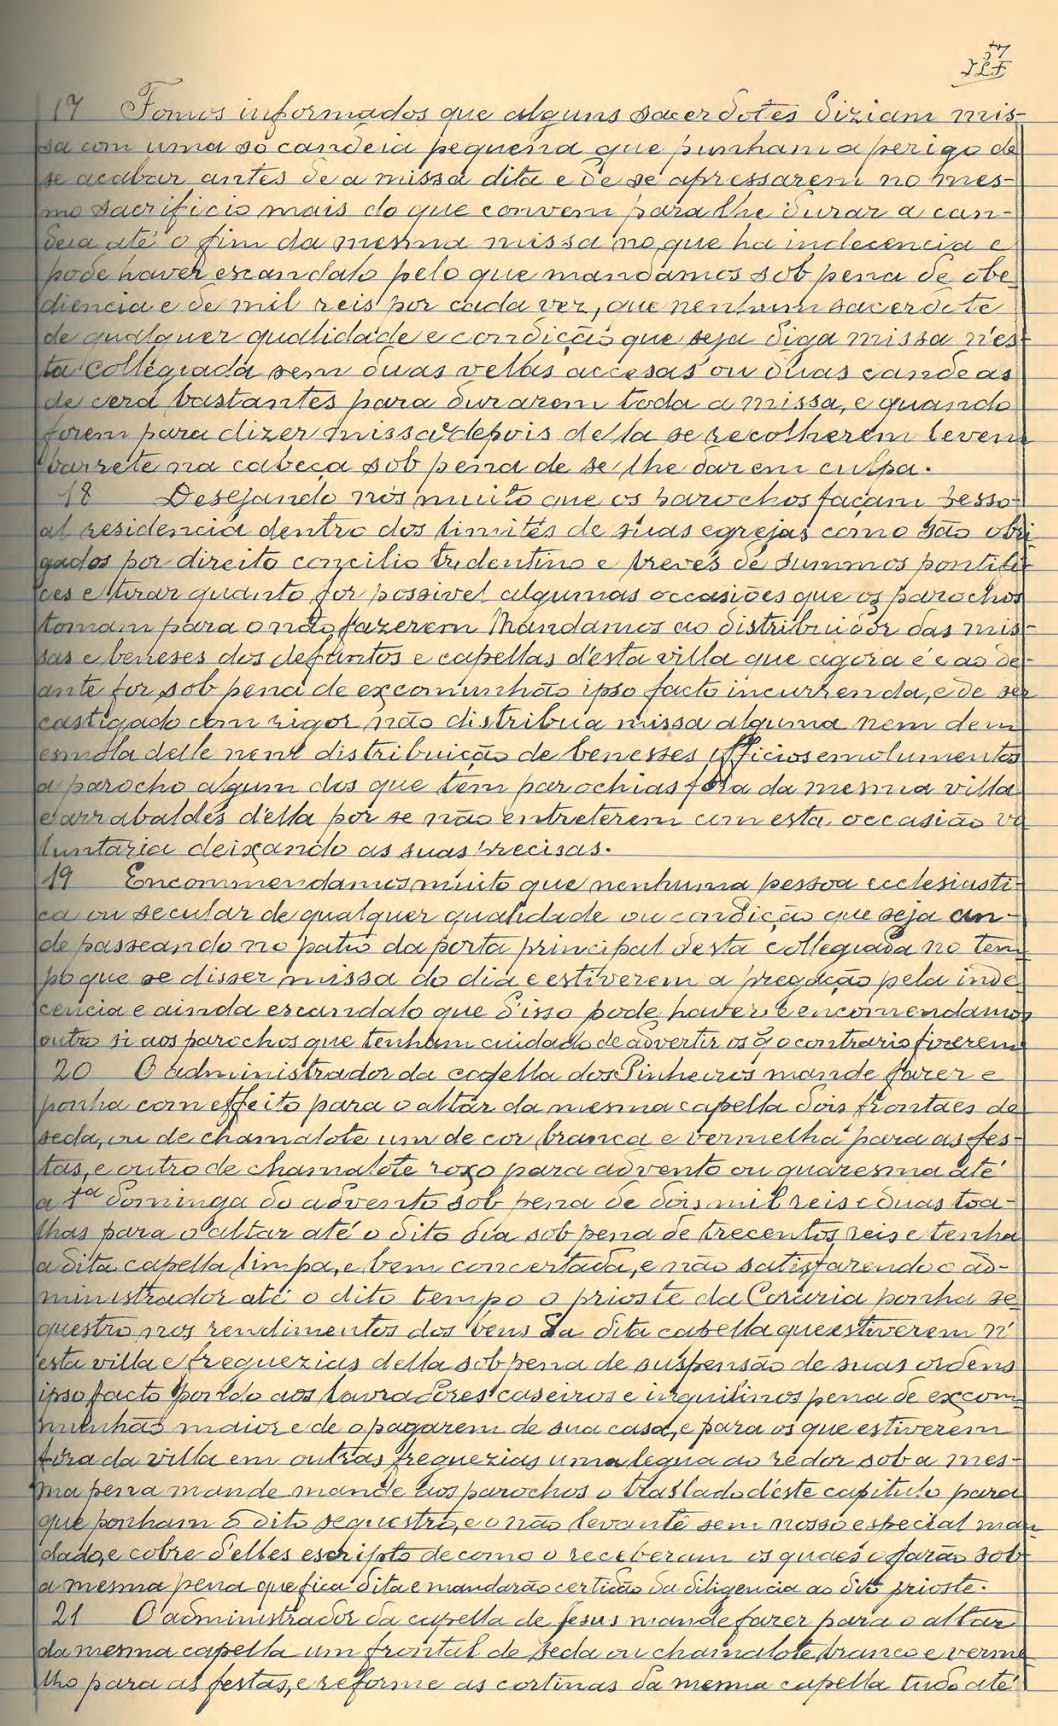 37
17 Fomos informados que alguns sacerdotes diziam mis-
sa com uma só candeia pequena que punham a perigo de
se acabar antes de a missa dita e de se apressarem no mes-
mo sacrificio mais do que convem para lhe durar a can-
deia até o fim da mesma missa no que ha indecencia e
pode haver escandalo pelo que mandamos sob pena de obe-
diencia e de mil reis por cada vez, que nenhum sacerdote
de qualquer qualidade e condição que seja diga missa n'es-
ta collegiada sem duas vellas accesas ou duas candeas
de cera bastantes para durarem toda a missa, e quando
forem para dizer missa e depois della se recolherem levem
barrete na cabeça sob pena de se lhe dar em culpa.
18 Desejando nós muito que os parochos façam pesso-
al residencia dentro dos limites de suas egrejas como são obri
gados por direito concilio tridentino e breves de summos pontifi-
ces e tirar quanto for possivel algumas occasiões que os parochos
tomam para o não fazerem Mandamos ao distribuidor das mis-
sas e beneses dos defuntos e capellas d'esta villa que agora é e ao de-
ante for, sob pena de excomunhão ipso facto incurrenda, e de ser
castigado com rigor não distribua missa alguma nem dem
esmola delle nem distribuição de benesses officios emolumentos
a parocho algum dos que têm parochias fóra da mesma villa
e arrabaldes d'ella por se não entreterem com esta occasião vo
luntaria deixando as suas precisas.
19 Encommendamos muito que nenhuma pessoa ecclesiasti-
ca ou secular de qualquer qualidade ou condição que seja an-
de passeando no patio da porta principal desta collegiada no tem
po que se disser missa do dia e estiverem a pregação pela inde-
cencia e ainda escandalo que d'isso pode haver, e encomendamos
outro si aos parochos que tenham cuidado de advertir os q̃ o contrario fizerem
20 O administrador da capella dos Pinheiros mande fazer e
ponha com effeito para o altar da mesma capella dois frontaes de
seda, ou de chamalote um de cor branca e vermelha para as fes-
tas, e outro de chamalote roxo para advento ou quaresma até
a 1ª dominga do advento sob pena de dois mil reis e duas toa-
lhas para o altar até o dito dia sob pena de trecentos reis e tenha
a dita capella limpa, e bem concertada, e não satisfazendo o ad-
ministrador até o dito tempo o prioste da Coraria ponha se-
questro nos rendimentos dos bens da dita capella que estiverem n'
esta villa e freguezias della sob pena de suspensão de suas ordens
ipso facto pondo aos lavradores caseiros e inquilinos pena de excom-
munhão maior e de o pagarem de sua casa, e para os que estiverem
fóra da villa em outras freguezias uma legua ao redor sob a mes-
ma pena mande mande aos parochos o traslado d'este capitulo para
que ponham o dito sequestro, e o não levante sem nosso especial man
dado, e cobre d'elles escripto de como o receberam os quaes o farão sob
a mesma pena que fica dita e mandarão certidão da diligencia ao dito prioste.
21 O administrador da capella de Jesus mande fazer para o altar
da mesma capella um frontal de seda ou chamalote branco e verme
lho para as festas, e reforme as cortinas da mesma capella tudo até